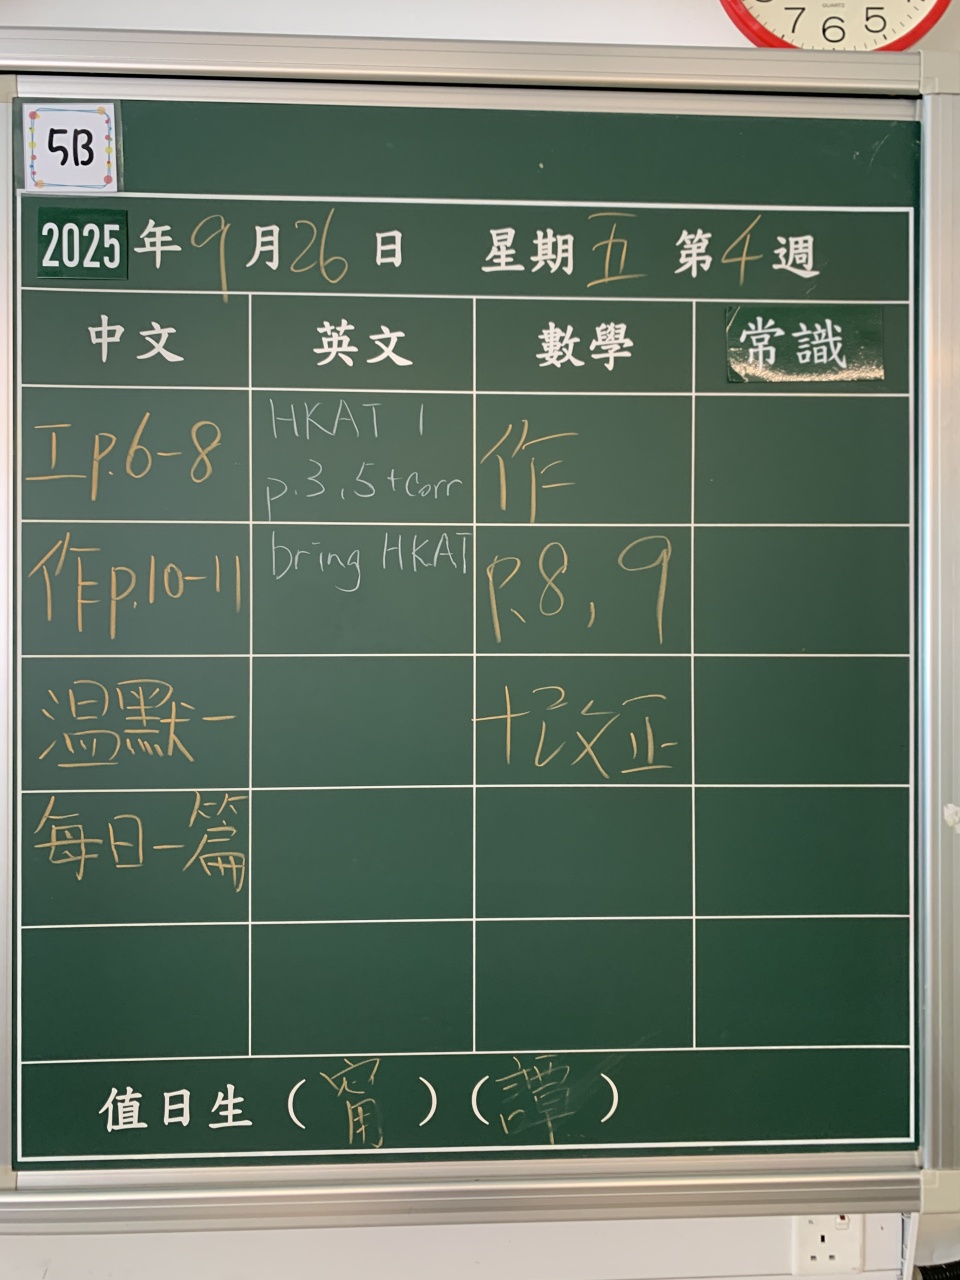 7 6 5
QUARTZ
5B
2025年9月26日 星期五 第4週
中文 英文 數學 常識
工p.6-8
HKAT 1
p.3,5+corr
作
作p.10-11
bring HKAT
p.8,9
溫默一
+改正
每日一篇
值日生（甯）（譚）